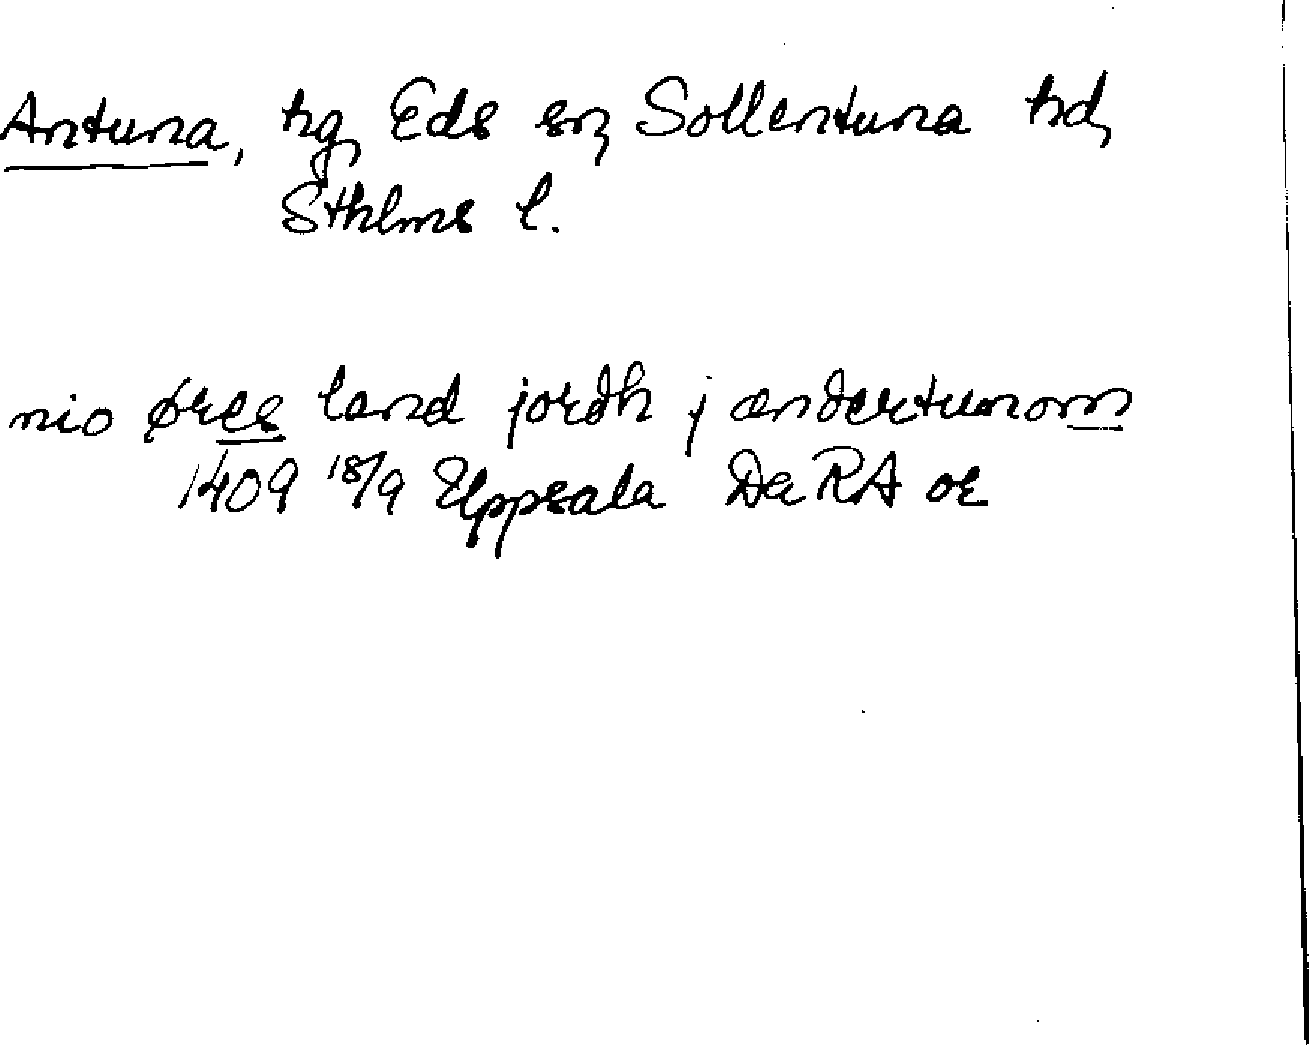 Antuna, hg, Eds sn, Sollentuna hd,
Sthlms l.
nio øres land jordh j andertunom
1409 18/9 Uppsala Da RA or